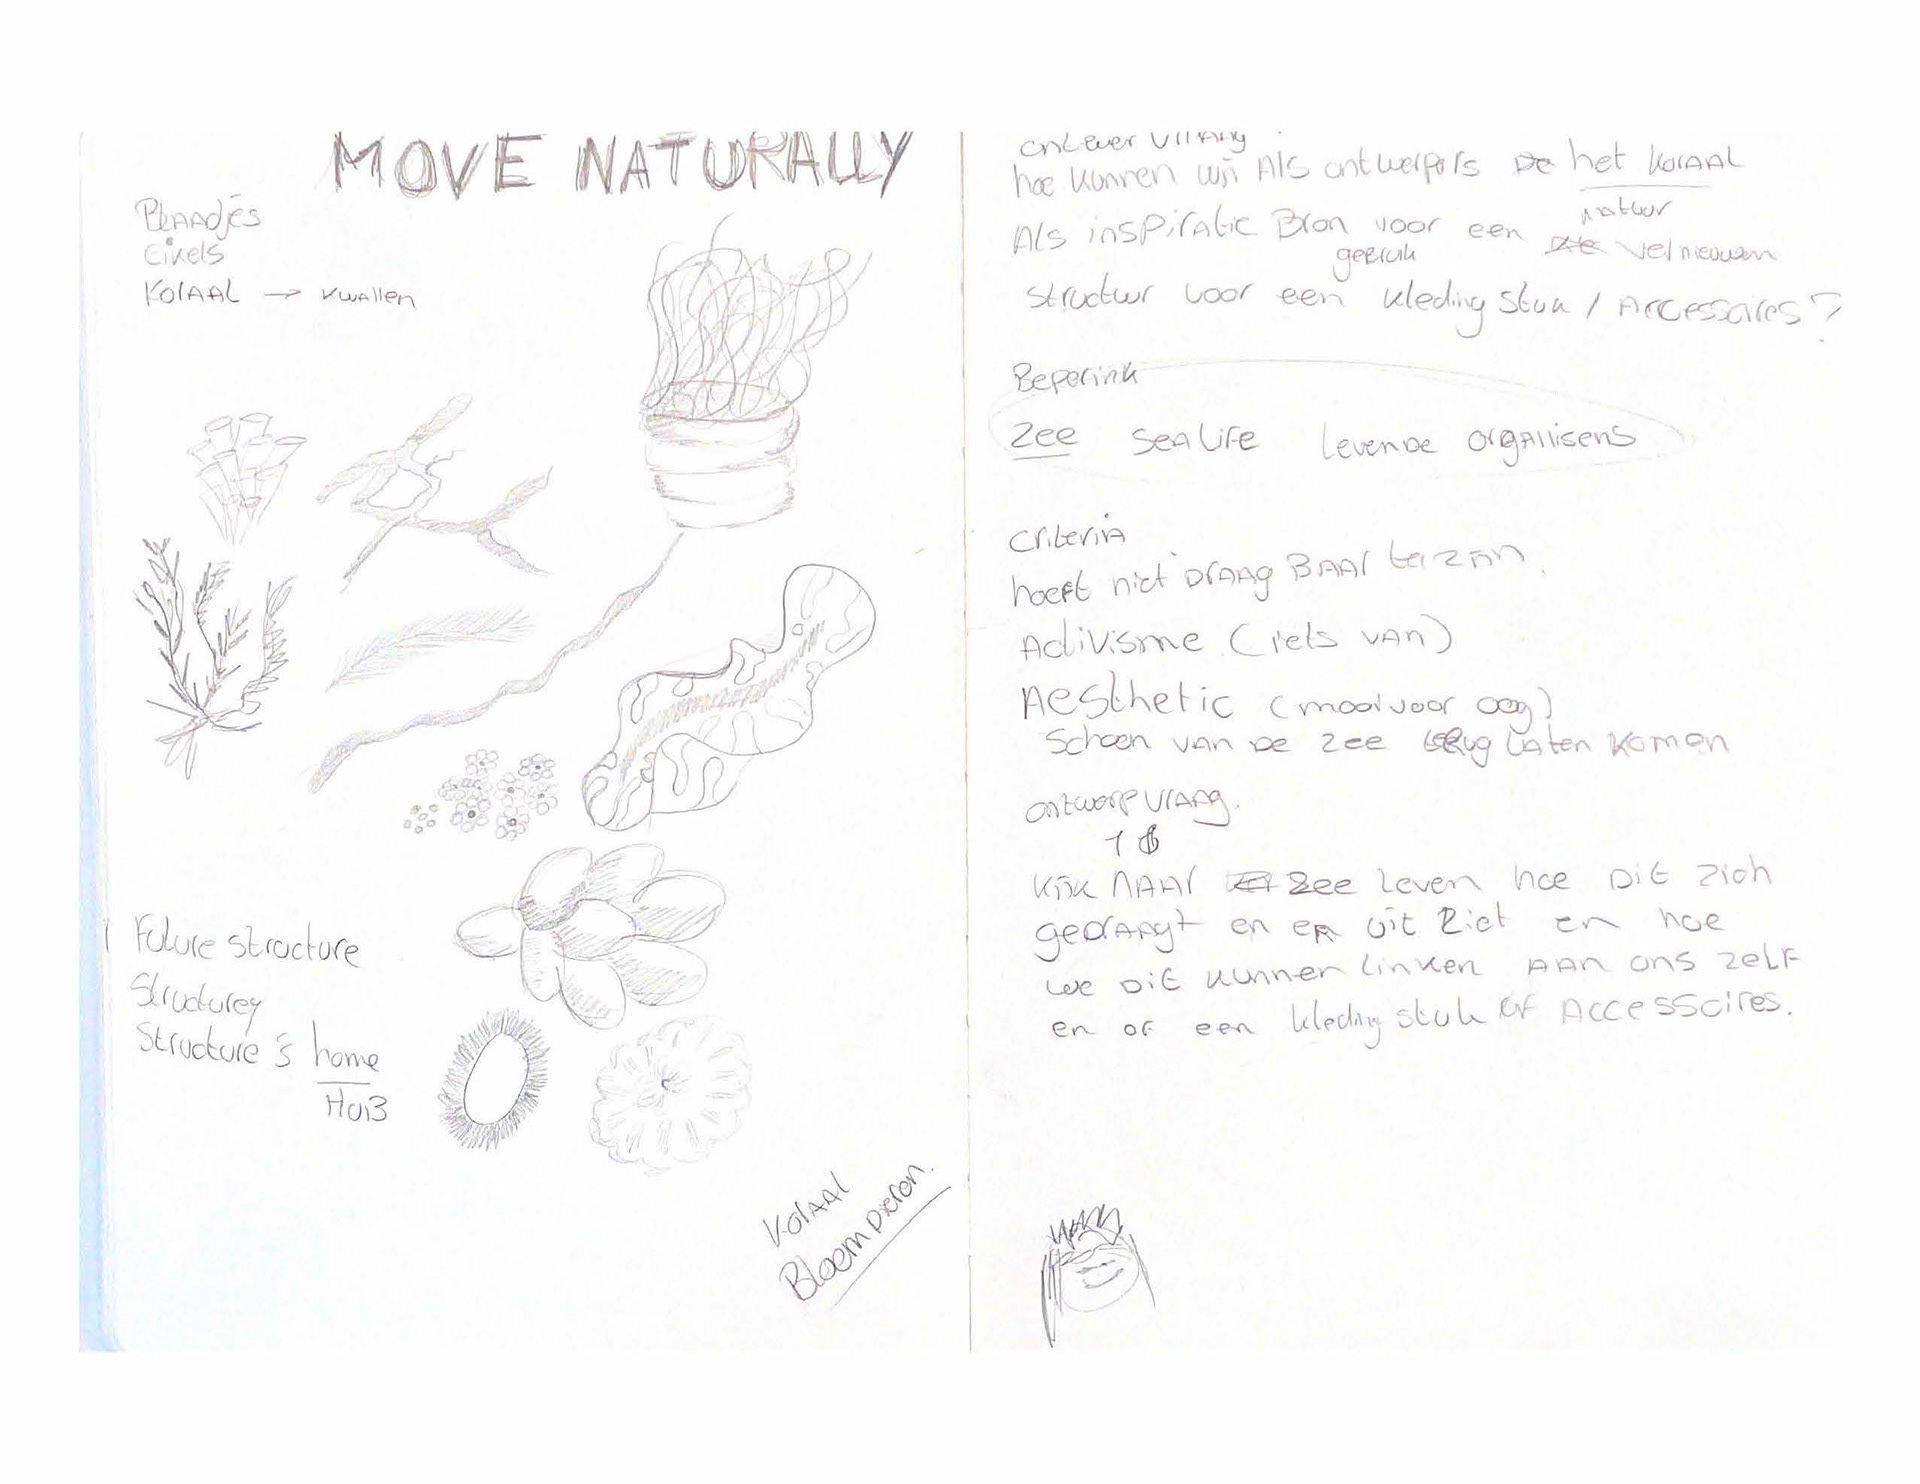 MOVE NATURALLY
Blaadjes
eikels
KoraaL → kwallen
Future structure
Structurey
Structure's home
Huis
Koraal
Bloem Dieren.
hoe kunnen wij Als ontwerpers De het koraal
natuur
Als inspiratie Bron voor een vernieuwen
gebruik
structuur voor een kleding stuk / Accessaires?
Beperink
Zee sea life levende organisens
Criteria
hoeft niet Draag Baar te zijn.
Activisme (iets van)
Aesthetic (mooi voor oog)
Schoon van de zee terug laten komen
ontwerp vraag.
kijk naar zee leven hoe Dit zich
gedraagt en er uit ziet en hoe
we Dit kunnen linken AAn ons zelf
en of een kleding stuk of Accessoires.